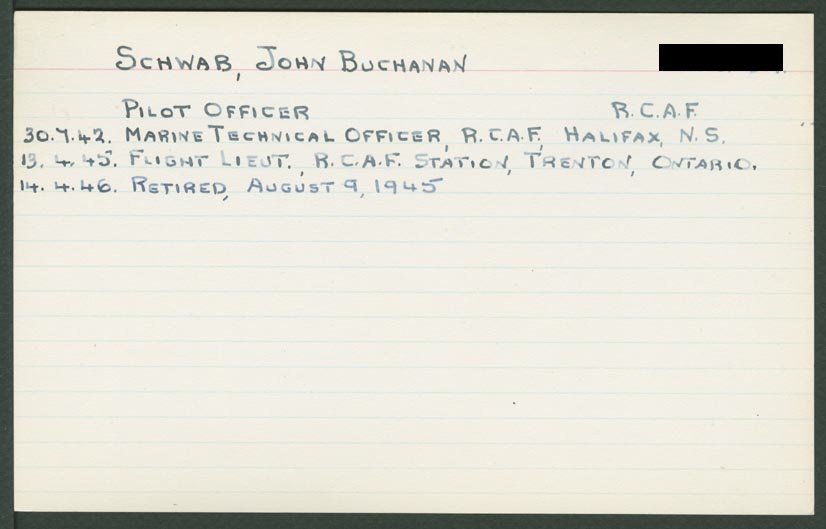 SCHWAB, JOHN BUCHANAN
PILOT OFFICER R.C.A.F.
30.7.42. MARINE TECHNICAL OFFICER, R.C.A.F., HALIFAX, N.S.
13.4.45. FLIGHT LIEUT., R.C.A.F. STATION, TRENTON, ONTARIO.
14.4.46. RETIRED, AUGUST 9, 1945